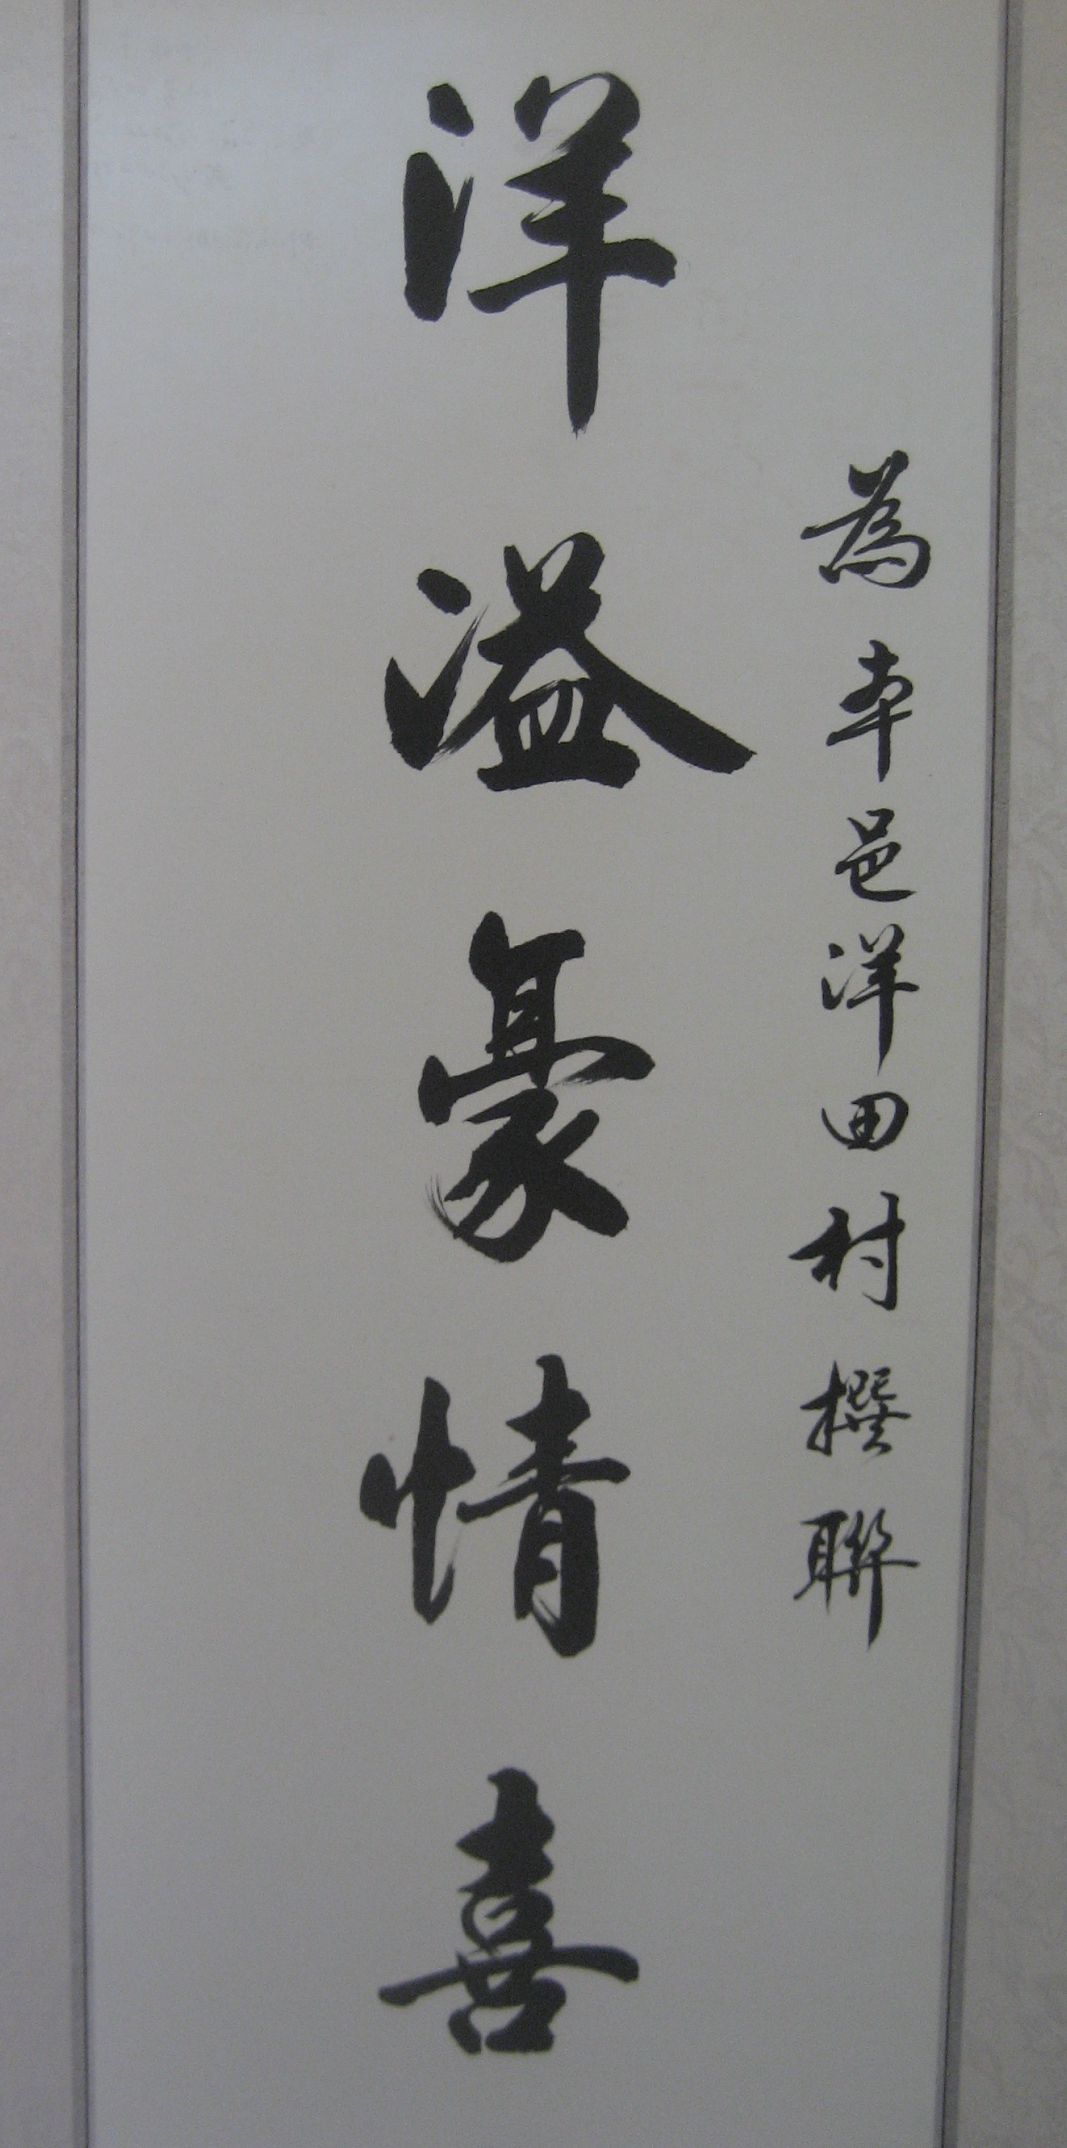 為本邑洋田村撰聯
洋溢豪情喜